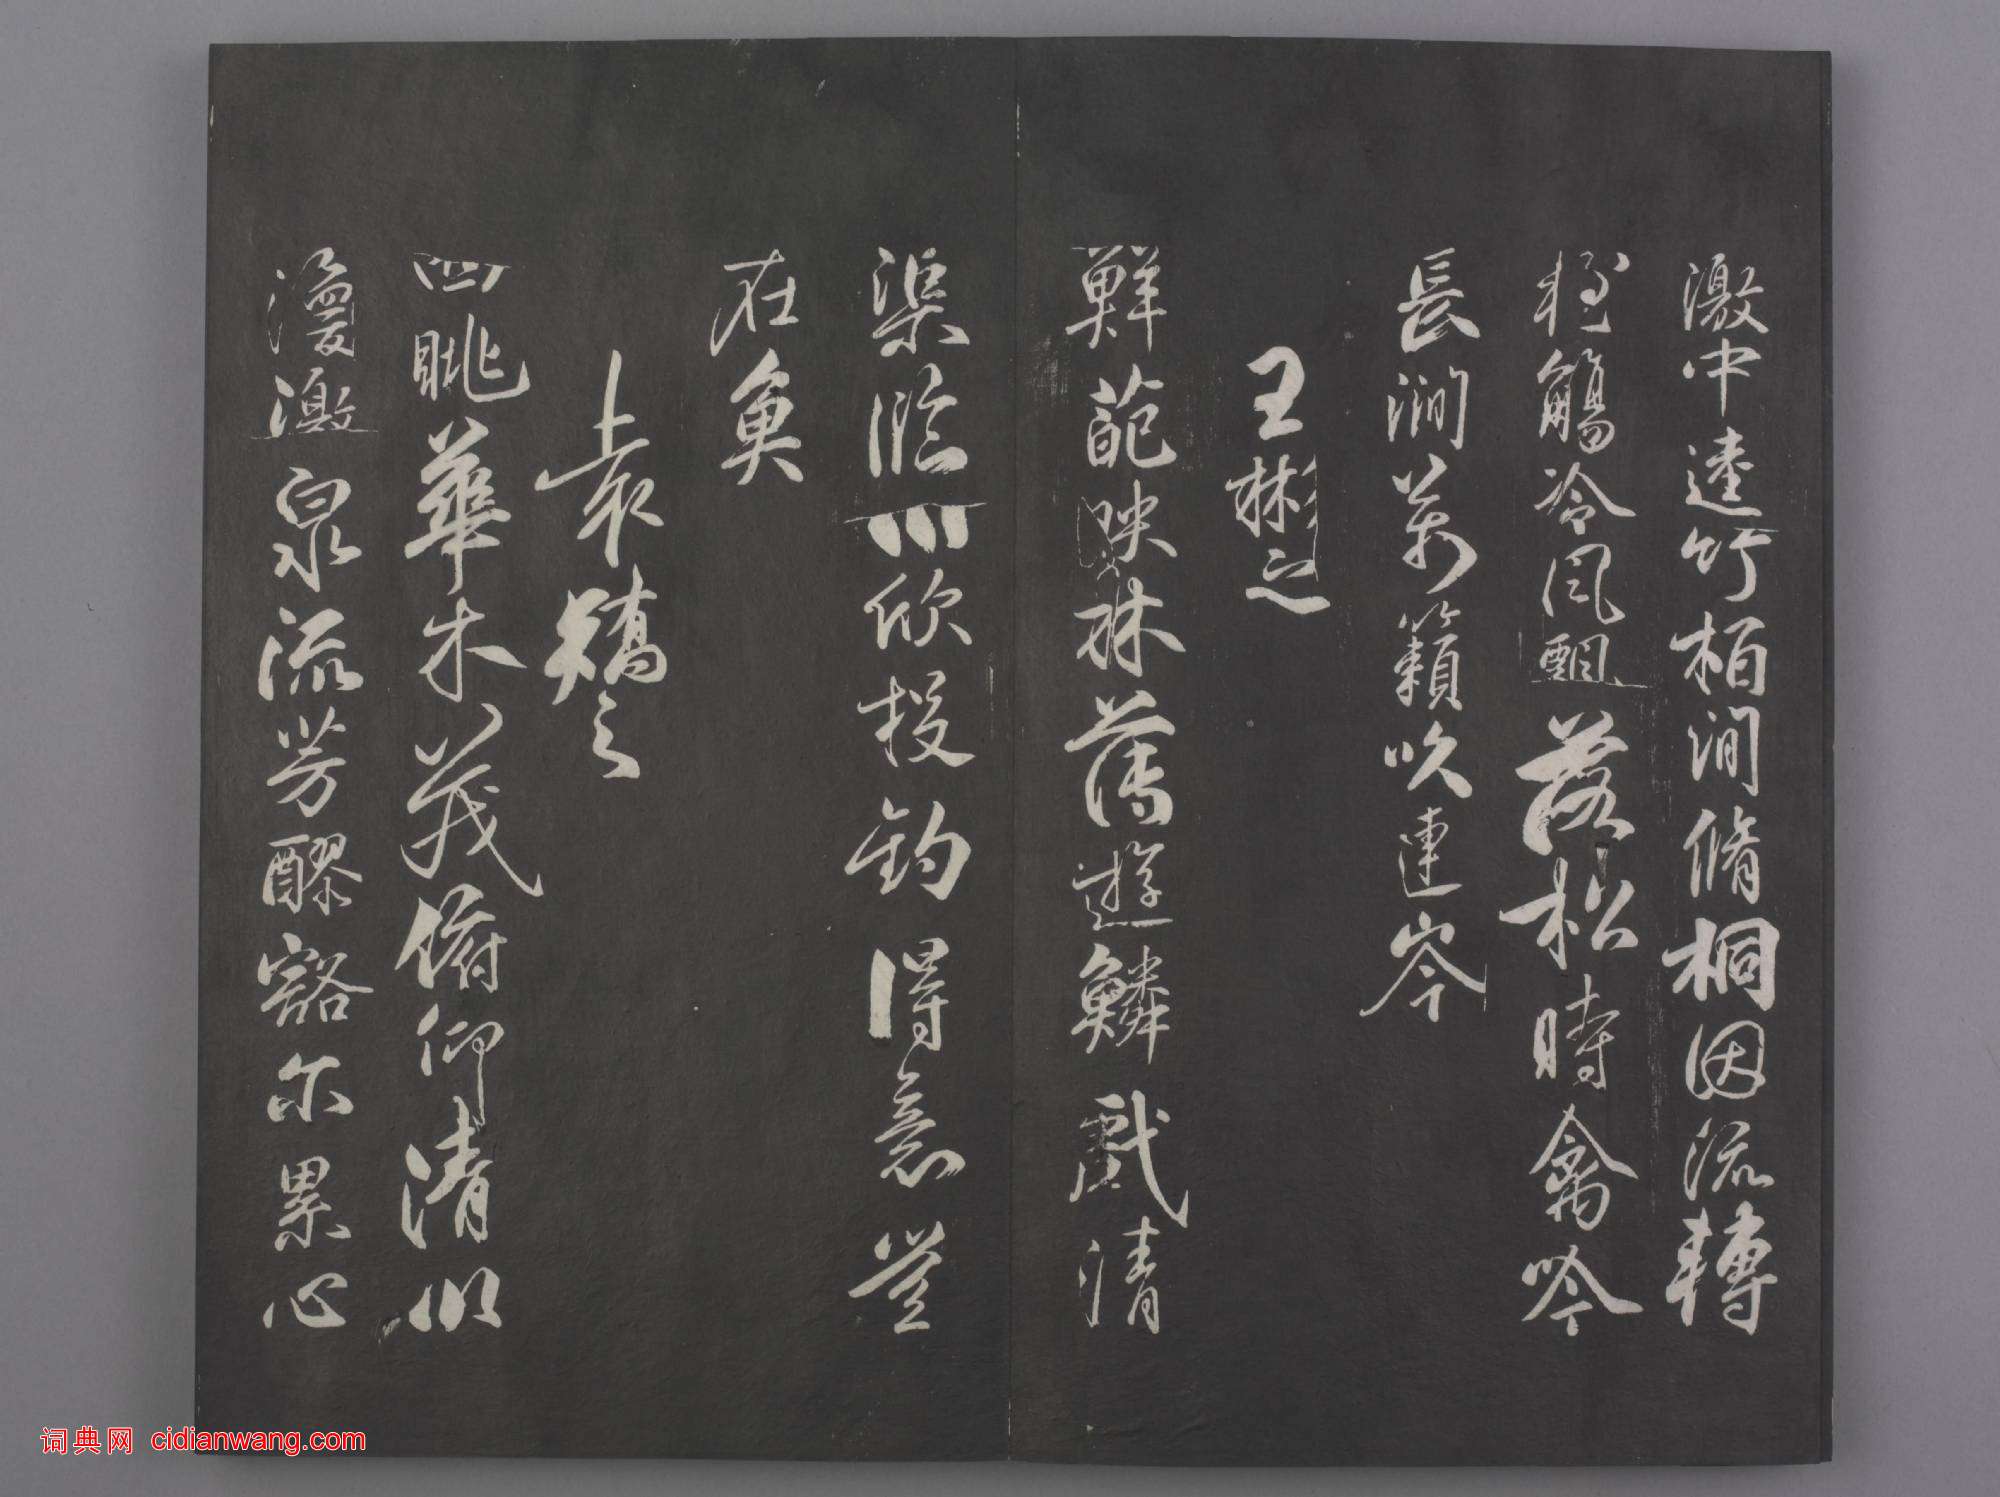 激中逵竹柏澗脩桐因流轉
輕觴冷風飄落松時禽吟
長澗萬籟吹連岑
王彬之
鮮葩映林薄遊鱗戲清
渠臨川欣投釣得意豈
在魚
袁矯之
四眺華木茂俯仰清川
漫激泉流芳醪豁尔累心
词典网 cidianwang.com